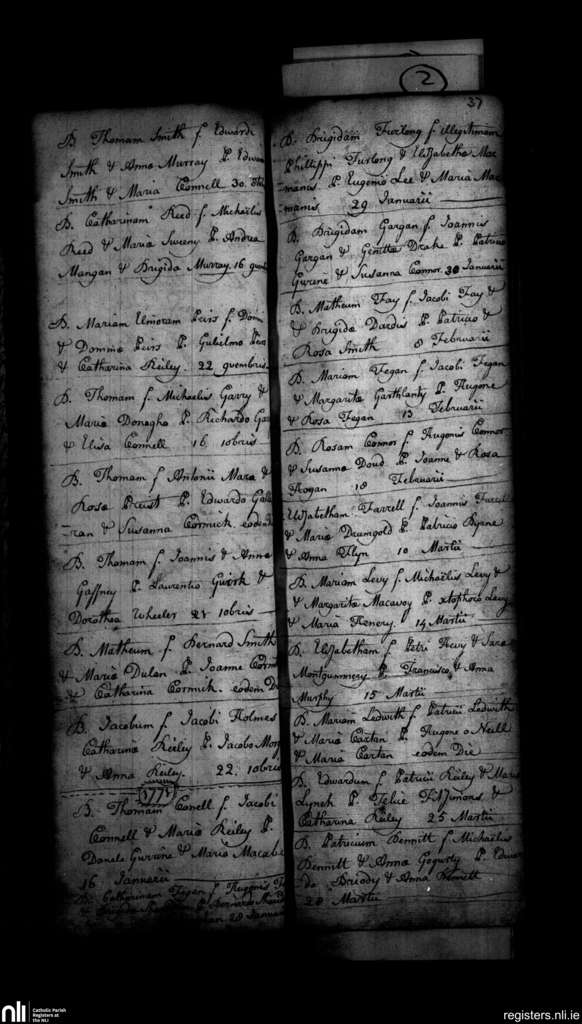 2
37
B. Thomam Smith f. Edwardi
Smith & Anna Murray P. Edwar
Smith & Maria Connell 30.
B. Catharinam Reed f. Michaelis
Reed & Maria Sweeny P. Andrea
Mangan & Brigida Murray 16
B. Mariam Peirs f. Dom
& Domina Peirs P. Gulielmo
& Catharina Reiley. 22 9vembris
B. Thomam f. Michaelis Garry &
Maria Donogho P. Richardo
& Elisa Connell 16 10bris
B. Thomam f. Antonii Mara &
Rosa Preist P. Edwardo
ran & Susanna Cormick. eodem
B. Thomam f. Joannis & Anna
Gaffney P. Laurentio Quirk &
Dorothea Wheeler 21 10bris
B. Matheum f. Bernard Smith
& Maria Dulan P. Joanne Corm
& Catharina Cormick. eodem D
B. Jacobum f. Jacobi Holmes
Catharina Reiley P. Jacobo
& Anna Reiley. 22. 10bris
1771
B. Thomam Conell f. Jacobi
Connell & Maria Reiley P.
Daniele & Maria Macabe
16 Januarii
B. Catharinam Fegan f. Hugonis
P. Bernardo
28 Januar
B. Brigidam Furlong f. illegitimam
Phillippi Furlong & Elizabetha Mac
manus P. Eugenio Lee & Maria Mac
manis 29 Januarii
B. Brigidam Gargan f. Joannis
Gargan & Drake P. Patricio
& Susanna Connor 30 Januarii
B. Matheum Fay f. Jacobi Fay &
& Brigida Dardis P. Patricio &
Rosa Smith 8 Februarii
B. Mariam Fegan f. Jacobi Fegan
& Margarita Garthlanty P. Hugone
& Rosa Fegan 13 Februarii
B. Rosam Connor f. Hugonis Connor
& Susanna Doud P. Joanne & Rosa
Hogan 18 Februarii
Elizabetham Farrell f. Joannis Farrell
& Maria Drumgold P. Patricio Byrne
& Anna Flyn 10 Martii
B. Mariam Levy f. Michaelis Levy &
& Margarita Macavoy P. xtophoro Levy
& Maria Henery. 14 Martii
B. Elizabetham f. Petri & Sara
Montgummery P. Francisco & Anna
Murphy 15 Martii
B. Mariam Ledwith f. Patricii Ledwith
& Maria Cartan P. Hugone o Neill
& Maria Cartan eodem Die
B. Edwardum f. Patricii Reiley & Maria
Lynch P. Felice Fitzimons &
Catharina Reiley 25 Martii
B. Patricium Bennitt f. Michaelis
Bennitt & Anna Gogurty P. Edwar
do Briody & Anna Bennett
28 Martii
nli
Catholic Parish
Registers at
the NLI
registers.nli.ie